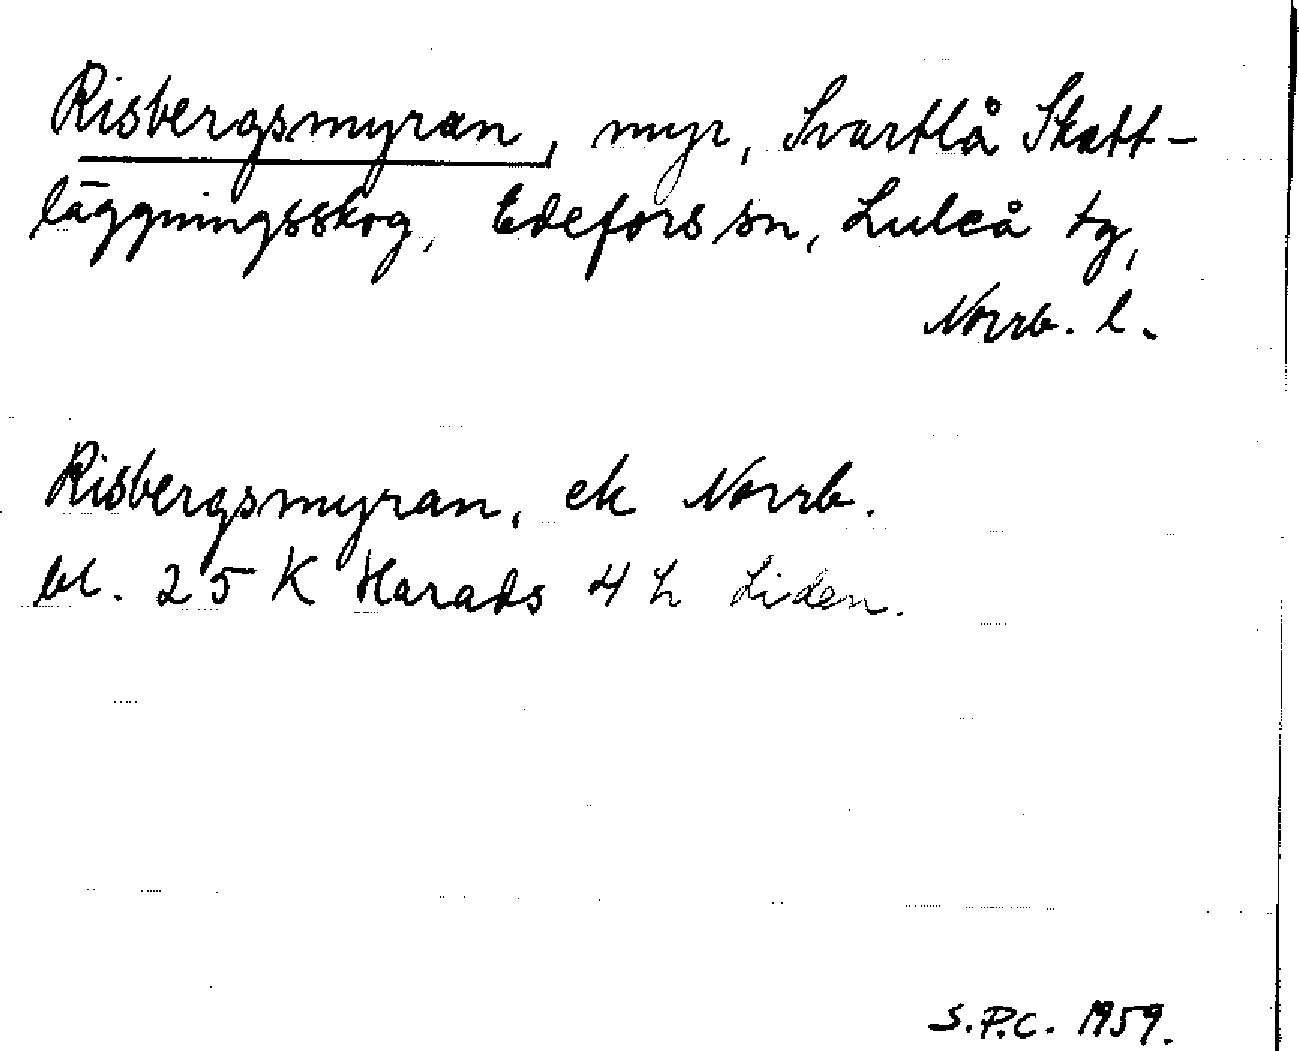 Risbergsmyran, myr, Svartlå Skatt-
läggningsskog, Edefors sn, Luleå tg,
Norrb. l.
Risbergsmyran, ek Norrb.
bl. 25 K Harads 4 h Liden.
S.P.C. 1959.